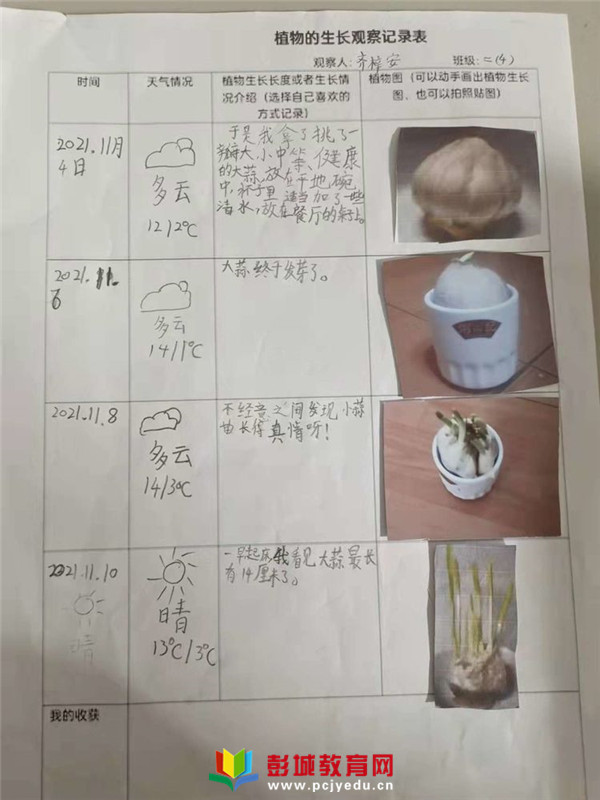 植物的生长观察记录表
观察人：
班级：二(4)
时间
天气情况
植物生长长度或者生长情
况介绍（选择自己喜欢的
方式记录）
植物图（可以动手画出植物生长
图、也可以拍照贴图）
2021.11月
4日
多云
12/2℃
于是我拿了挑了一
瓣大、小中等、健康
的大蒜,放在干地碗
中,杯子里 适当加了一些
清水,放在餐厅的桌上。
2021.11.
6
多云
14/1℃
大蒜终于发芽了。
2021.11.8
多云
14/3℃
不经意之间发现小蒜
苗长得真情呀！
2021.11.10
晴
晴
13℃/3℃
一早起床我看见大蒜最长
有14厘米了。
我的收获
彭城教育网
www.pcjyedu.cn